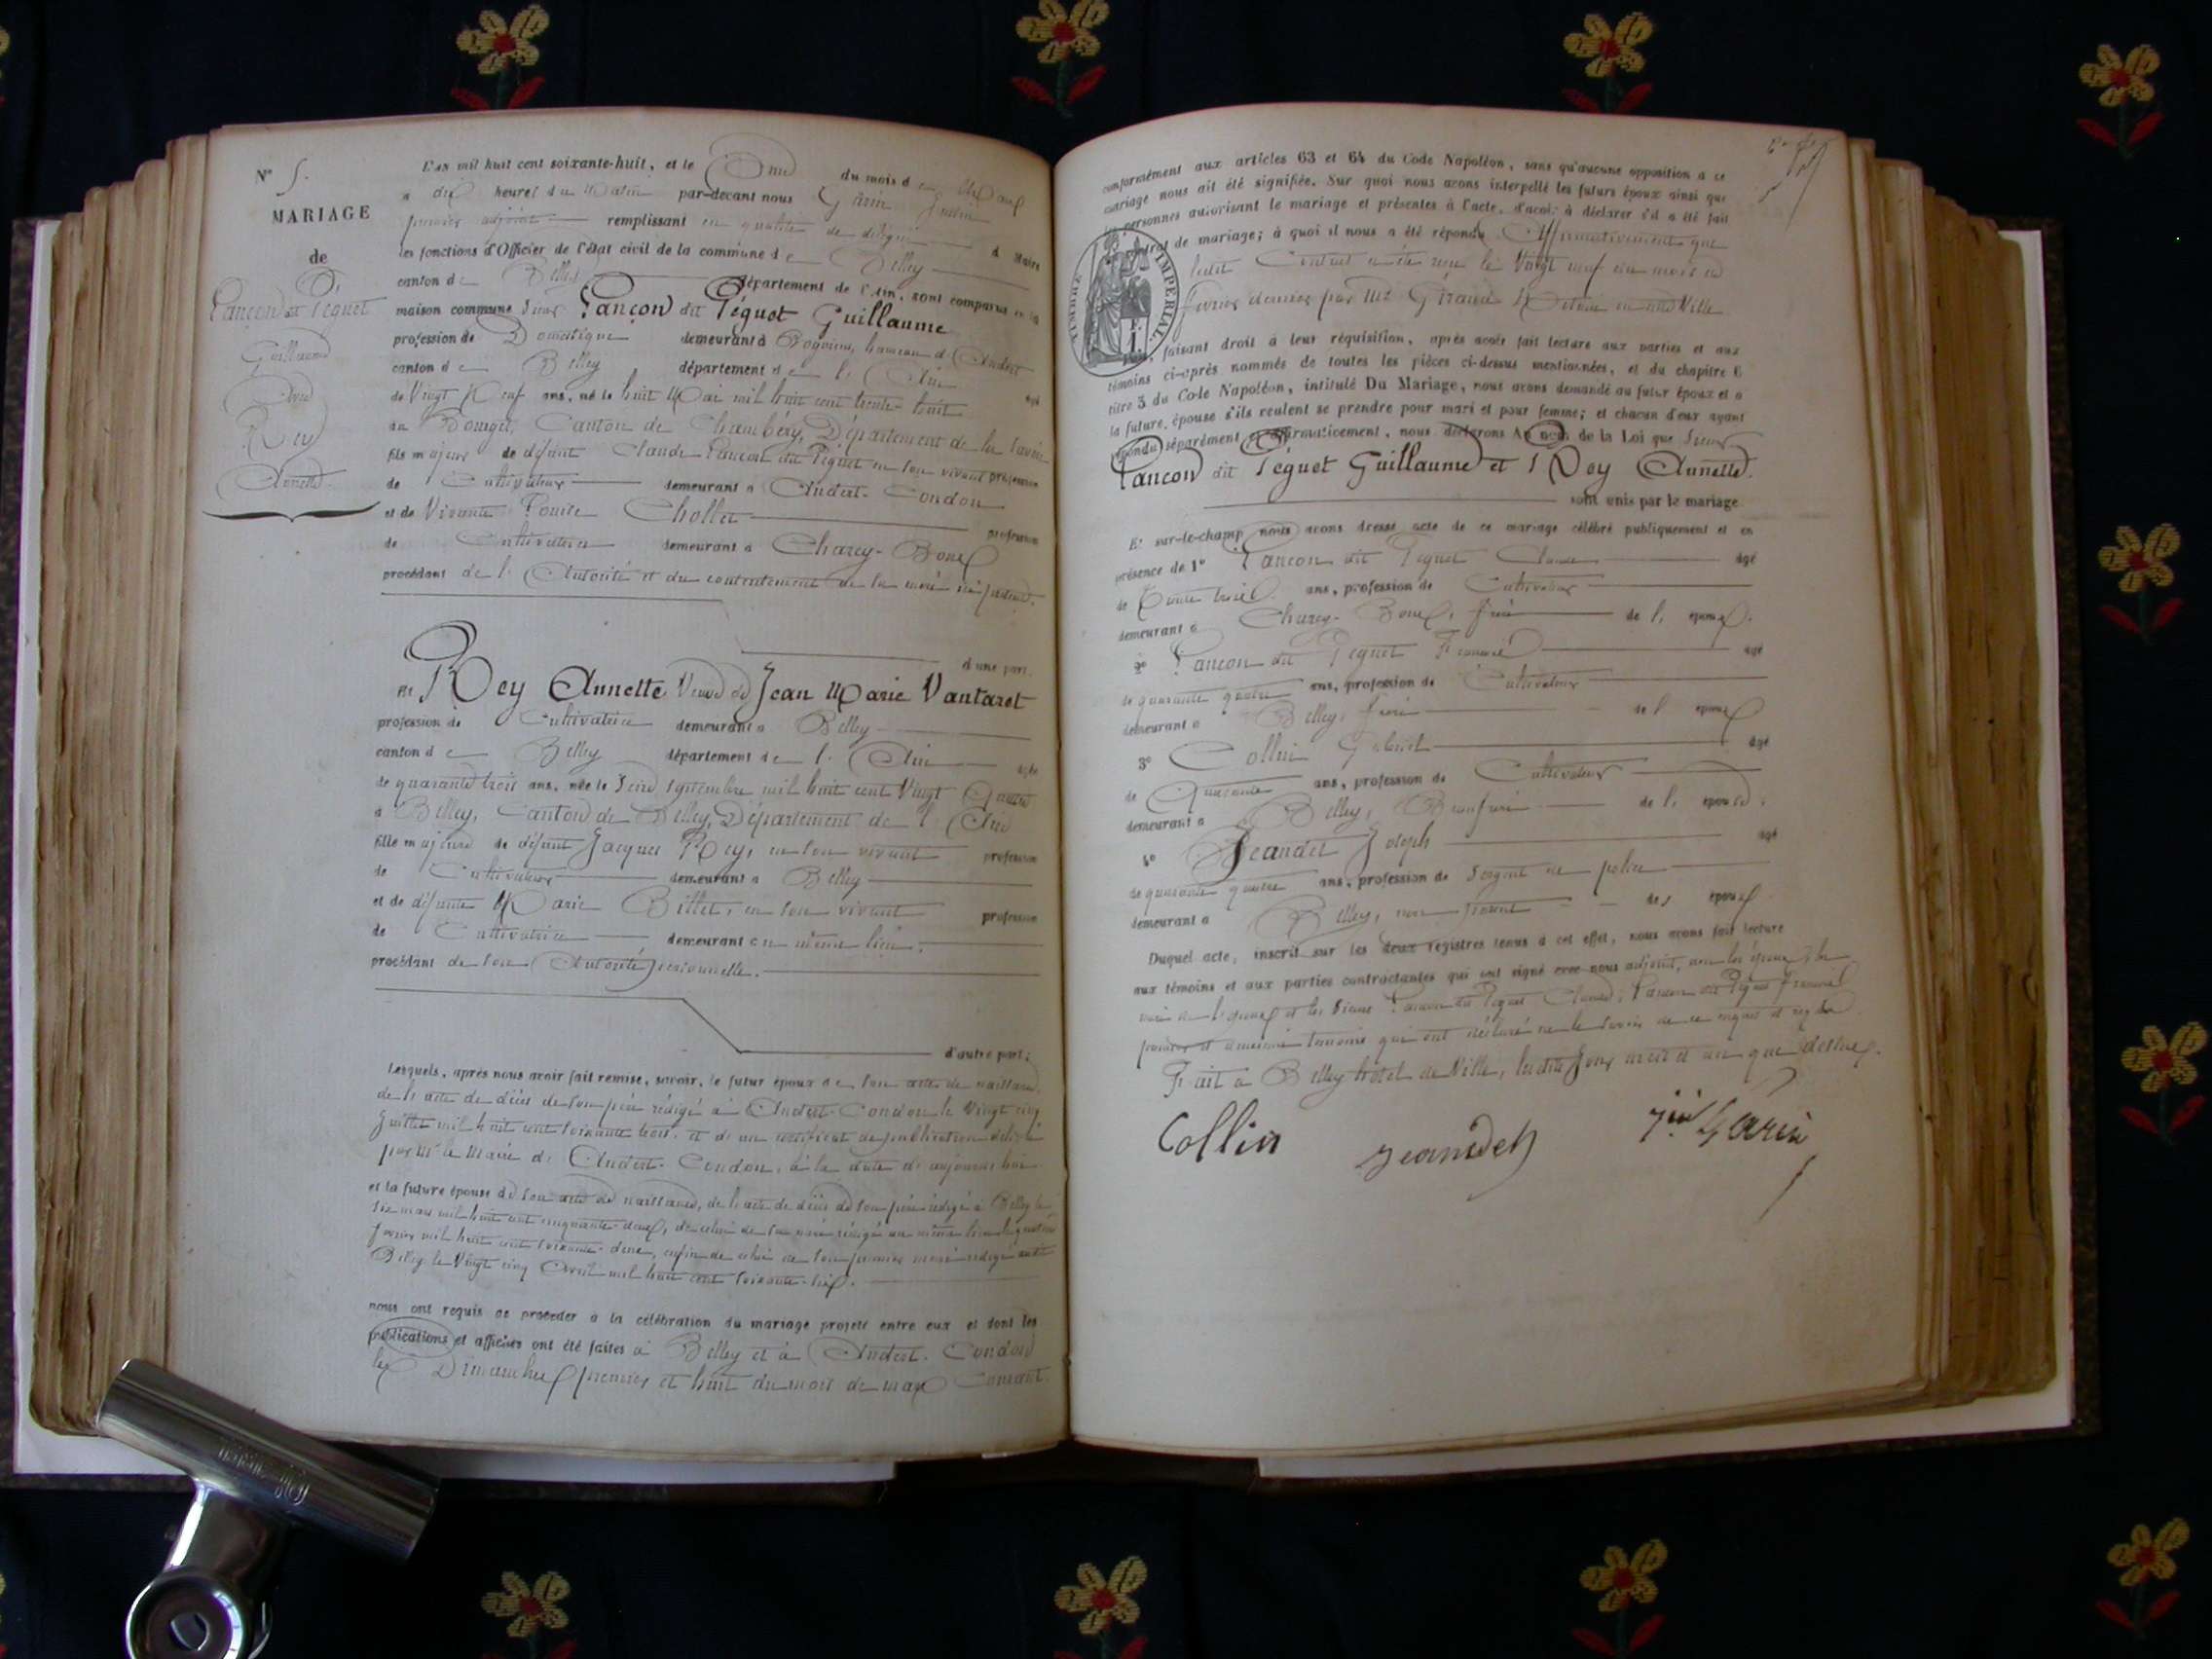 N° 5.
MARIAGE
de
Pançon dit Péguet
Guillaume
avec
Rey
Annette
L'an mil huit cent soixante-huit, et le Onze du mois de Mars
à dix heures du Matin par-devant nous Garin
premier adjoint remplissant en qualité de délégué du Maire
les fonctions d'Officier de l'état civil de la commune de Belley
canton de Belley département de l'Ain, sont comparus en la
maison commune Sieur Pançon dit Péguet Guillaume
profession de Domestique demeurant à hameau d'Andert
canton de Belley département de l'Ain âgé
de Vingt Neuf ans, né le huit Mai mil huit cent trente-huit
au Bourget, Canton de Chambéry, Département de la Savoie
fils majeur de défunt Claude Pançon dit Péguet en son vivant profession
de Cultivateur demeurant à Andert-Condon
et de Vivante Chollet profession
de Cultivatrice demeurant à Charey-Bonx
procédant de l'Autorité et du consentement de sa mère
d'une part.
Et Rey Annette Veuve de Jean Marie Vantaret
profession de Cultivatrice demeurant à Belley
canton de Belley département de l'Ain âgée
de quarante trois ans, née le Seize Septembre mil huit cent Vingt Quatre
à Belley, Canton de Belley, Département de l'Ain
fille majeure de défunt Jacques Rey, en son vivant profession
de Cultivateur demeurant à Belley
et de défunte Marie Billet, en son vivant profession
de Cultivatrice demeurant au même lieu,
procédant de son Autorité personnelle.
d'autre part;
Lesquels, après nous avoir fait remise, savoir, le futur époux de son acte de naissance,
de l'acte de décès de son père rédigé à Andert-Condon le Vingt cinq
Juillet mil huit cent soixante trois, et d'un certificat de publication délivré
par Mr le Maire d'Andert-Condon, à la date d'aujourd'hui
et la future épouse de son acte de naissance, de l'acte de décès de son père rédigé à Belley le
six mars mil huit cent cinquante-deux, de celui de sa mère rédigé au même lieu le quatre
février mil huit cent soixante-deux, enfin de celui de son premier mari rédigé audit
Belley le Vingt cinq Avril mil huit cent soixante-six.
nous ont requis de procéder à la célébration du mariage projeté entre eux et dont les
publications et affiches ont été faites à Belley et à Andert-Condon
les Dimanches premier et huit du mois de mars Courant
conformément aux articles 63 et 64 du Code Napoléon, sans qu'aucune opposition à ce
mariage nous ait été signifiée. Sur quoi nous avons interpellé les futurs époux ainsi que
les personnes autorisant le mariage et présentes à l'acte, d'avoir à déclarer s'il a été fait
contrat de mariage; à quoi il nous a été répondu Affirmativement que
ledit Contrat a été reçu le Vingt neuf du mois de
février dernier par Me Giraud Notaire en cette Ville
TIMBRE IMPÉRIAL
faisant droit à leur réquisition, après avoir fait lecture aux parties et aux
témoins ci-après nommés de toutes les pièces ci-dessus mentionnées, et du chapitre 6
titre 5 du Code Napoléon, intitulé Du Mariage, nous avons demandé au futur époux et à
la future épouse s'ils veulent se prendre pour mari et pour femme; et chacun d'eux ayant
répondu séparément et affirmativement, nous déclarons Au nom de la Loi que Sieur
Pançon dit Péguet Guillaume et Rey Annette.
sont unis par le mariage.
Et sur-le-champ nous avons dressé acte de ce mariage célébré publiquement et en
présence de 1° Pançon dit Péguet Claude âgé
de trente trois ans, profession de Cultivateur
demeurant à Charey-Bonx, frère de l'époux.
2° Pançon dit Péguet François âgé
de quarante quatre ans, profession de Cultivateur
demeurant à Belley, frère de l'époux
3° Collin Gabriel âgé
de Quarante ans, profession de Cultivateur
demeurant à Belley, Beaufrère de l'épouse.
4° Jeandet Joseph âgé
de quarante quatre ans, profession de Sergent de police
demeurant à Belley, non parent des époux
Duquel acte, inscrit sur les deux registres tenus à cet effet, nous avons fait lecture
aux témoins et aux parties contractantes qui ont signé avec nous adjoint, non les époux, la
mère de l'époux et les Sieurs Pançon dit Péguet Claude, Pançon dit Péguet François
premier et deuxième témoins qui ont déclaré ne le savoir de ce enquis et requis
Fait à Belley hôtel de Ville, lesdits Jour mois et an que dessus.
Collin
Jeandet
Garin